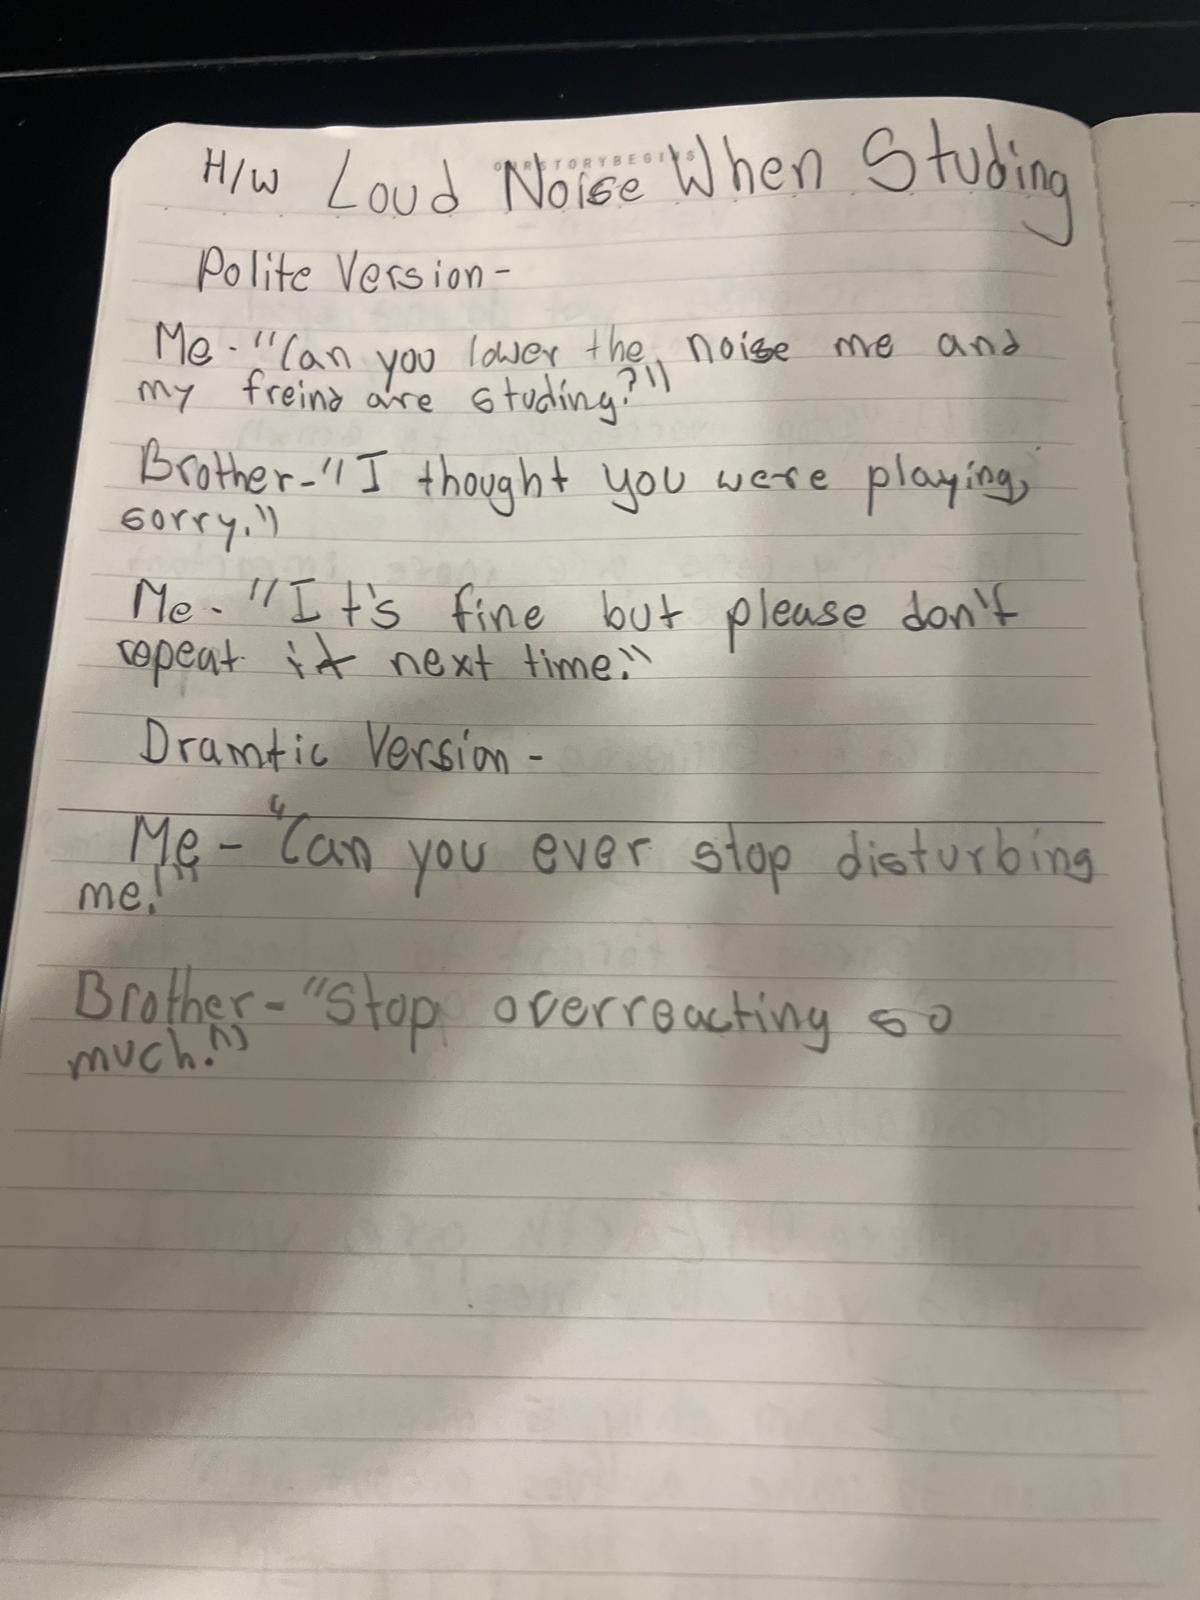 OURSTORYBEGINS
H/W Loud Noise When Studing
Polite Version-
Me-"Can you lower the noise me and
my freind are studing?"
Brother-"I thought you were playing,
sorry."
Me-"It's fine but please don't
repeat it next time."
Dramtic Version-
Me-"Can you ever stop disturbing
me!"
Brother-"Stop overreacting so
much!"